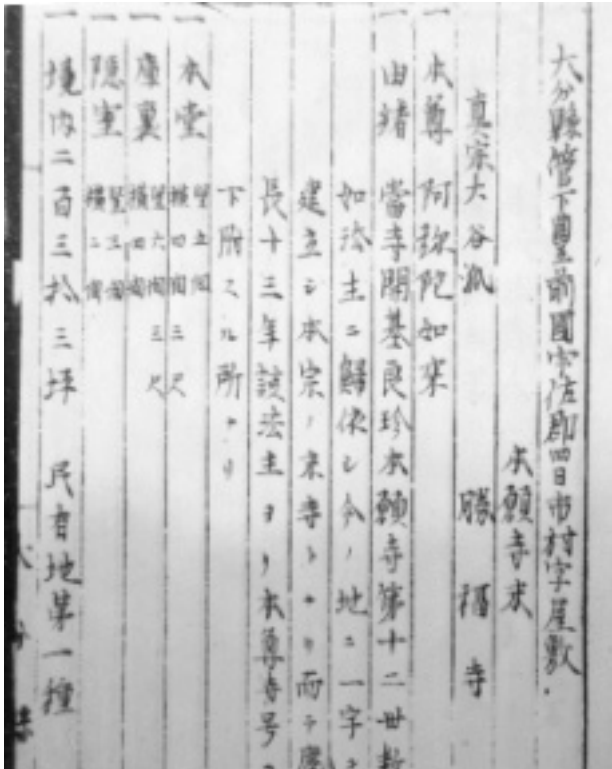 大分縣管下豊前國宇佐郡四日市村字屋敷
本願寺末
真宗大谷派 勝福寺
一 本尊 阿弥陀如来
一 由緒 當寺開基良珍本願寺第十二世教
如法主ニ歸依シ今ノ地ニ一宇ヲ
建立シ本宗ノ末寺トナリ而テ慶
長十三年該法主ヨリ本尊寺号ヲ
下附スル所ナリ
一 本堂 竪五間 横四間三尺
一 庫裏 竪六間三尺 横四間
一 隠室 竪三間 横二間
一 境内二百三拾三坪 民有地第一種